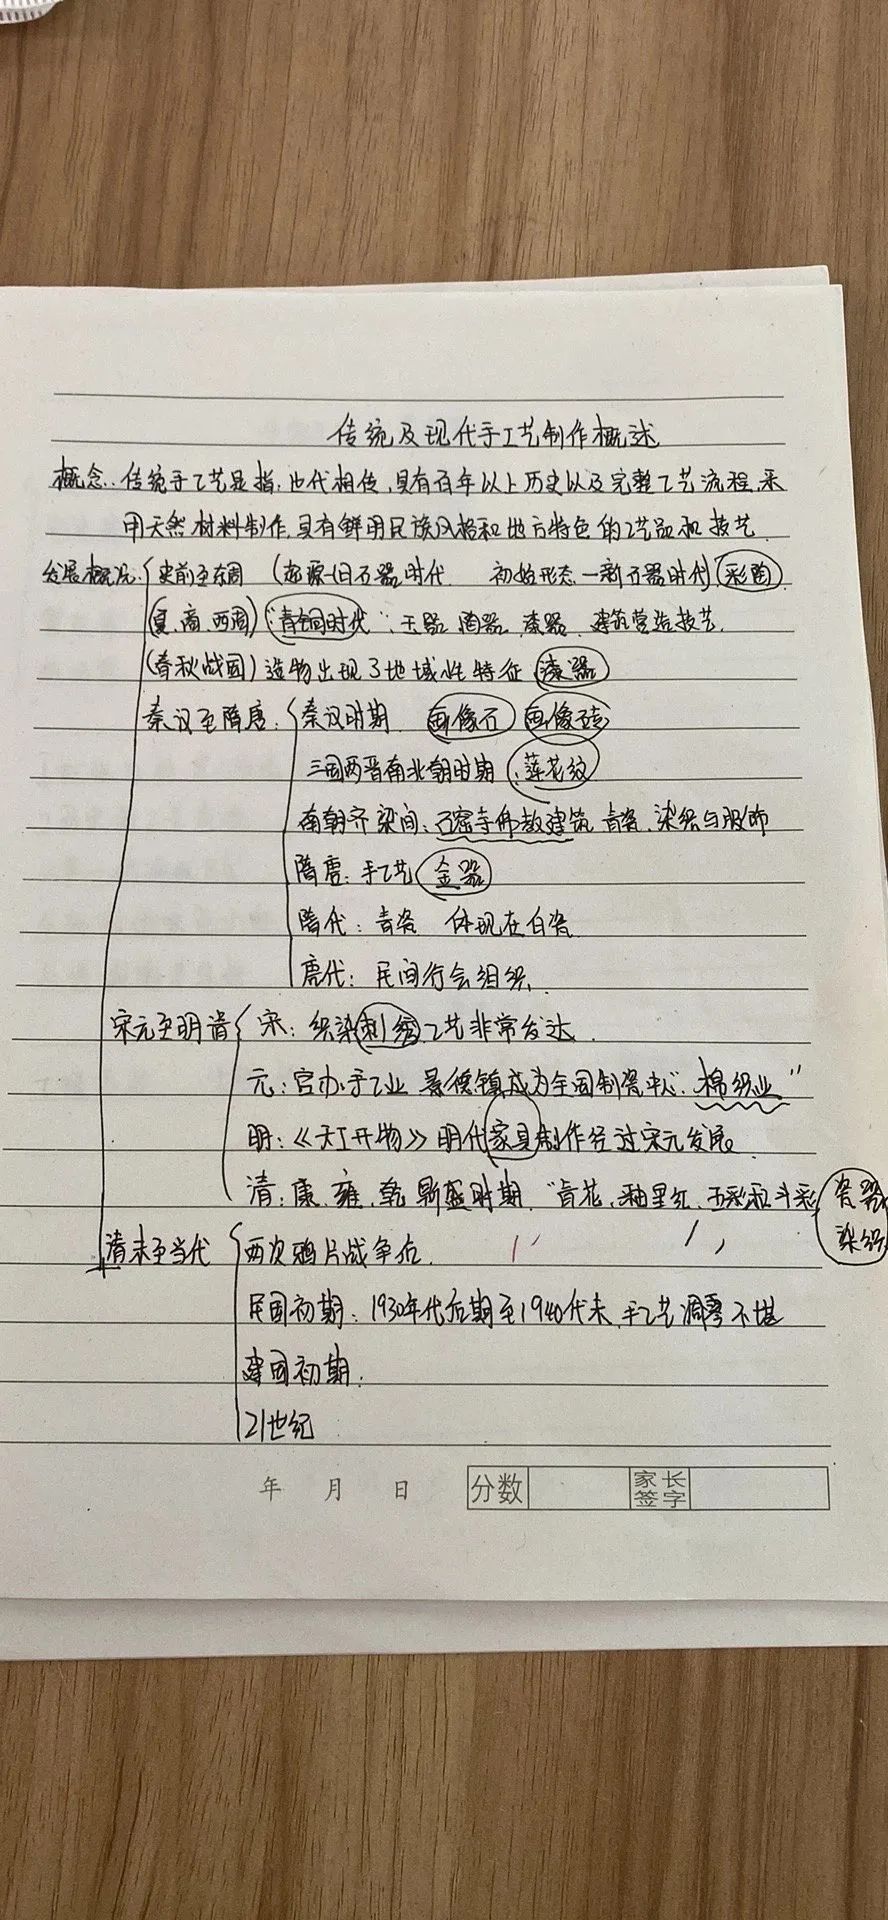 传统及现代手工艺制作概述
概念:传统手工艺是指:世代相传,具有百年以上历史以及完整工艺流程,采
用天然材料制作,具有鲜明民族风格和地方特色的工艺品和技艺
发展概况:史前至东周(起源-旧石器时代 初始形态-新石器时代)彩陶
(夏、商、西周)“青铜时代”,玉器 陶器 漆器 建筑营造技艺.
(春秋战国)造物出现了地域性特征 漆器
秦汉至隋唐:秦汉时期 画像石 画像砖
三国两晋南北朝时期:莲花纹
南朝齐梁间:石窟寺佛教建筑 青瓷、染织与服饰
隋唐:手工艺 金器
隋代:青瓷 体现在白瓷
唐代:民间行会组织
宋元至明清 宋:织染刺绣工艺非常发达.
元:官办手工业 景德镇成为全国制瓷中心“棉织业”
明:《天工开物》明代家具制作经过宋元发展
清:康、雍、乾 鼎盛时期.“青花、釉里红、五彩和斗彩 瓷器
染织
清末至当代 两次鸦片战争后.
民国初期:1930年代后期至1940代末,手工艺凋零不堪
建国初期:
21世纪
年 月 日 分数 家长签字